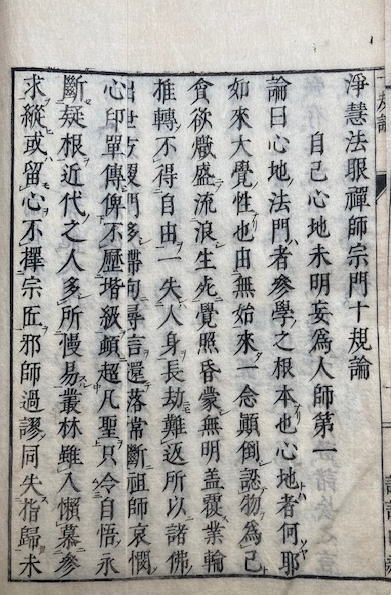 淨慧法眼禪師宗門十規論
自己心地未明妄爲人師第一
論曰心地法門者參學之根本也心地者何耶
如來大覺性也由無始來一念顚倒認物爲己
貪欲熾盛流浪生死覺照昏蒙無明盖覆業輪
推轉不得自由一失人身長劫難返所以諸佛
出世方便門多滯句尋言還落常斷祖師哀憫
心印單傳俾不歷堦級頓超凡聖只令自悟永
斷疑根近代之人多所慢易叢林雖入懶慕參
求縱或留心不擇宗匠邪師過謬同失指歸未